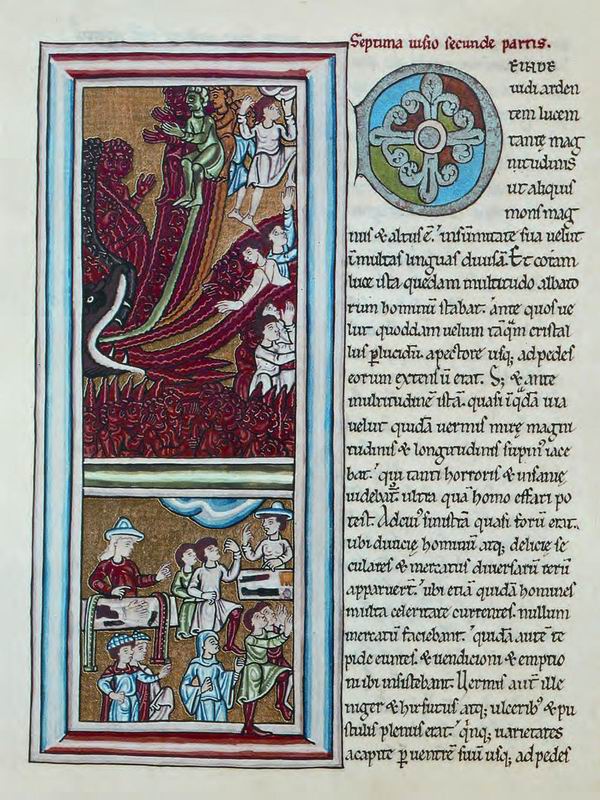 Septima uisio secunde partis.
DEINDE
uidi arden
tem lucem
tantę mag
nitudinis
ut aliquis
mons mag
nus & altus ē. insūmitate sua uelut
īmultas linguas diuisā. Et coram
luce ista quedam multitudo albato
rum hominū stabat. ante quos ue
lut quoddam uelum tāq̄m cristal
lus ꝑlucidū. apectore usq; adpedes
eorum extensū erat. S; & ante
multitudinē istā. quasi īq̄dā uia
uelut quidā uermis mirę magni
tudinis & longitudinis supinꝰ iace
bat. qui tanti horroris & insanię
uidebat᷑ ultra quā homo effari po
test. Adcuiꝰ sinistrā quasi forū erat.
ubi diuicię hominū atq; delicię se
culares & mercatus diuersarū rerū
apparuert̄. ubi etiā quidā homines
multa celeritate currentes. nullum
mercatū faciebant. quidā autē te
pide euntes. & uendicioni & emptio
ni ibi insistebant. Uermis aut̄ ille
niger & hirsutus atq; ulceribꝰ & pu
stulis plenus erat. qͥnq; uarietates
acapite ꝑ uentrē suū usq; adpedes